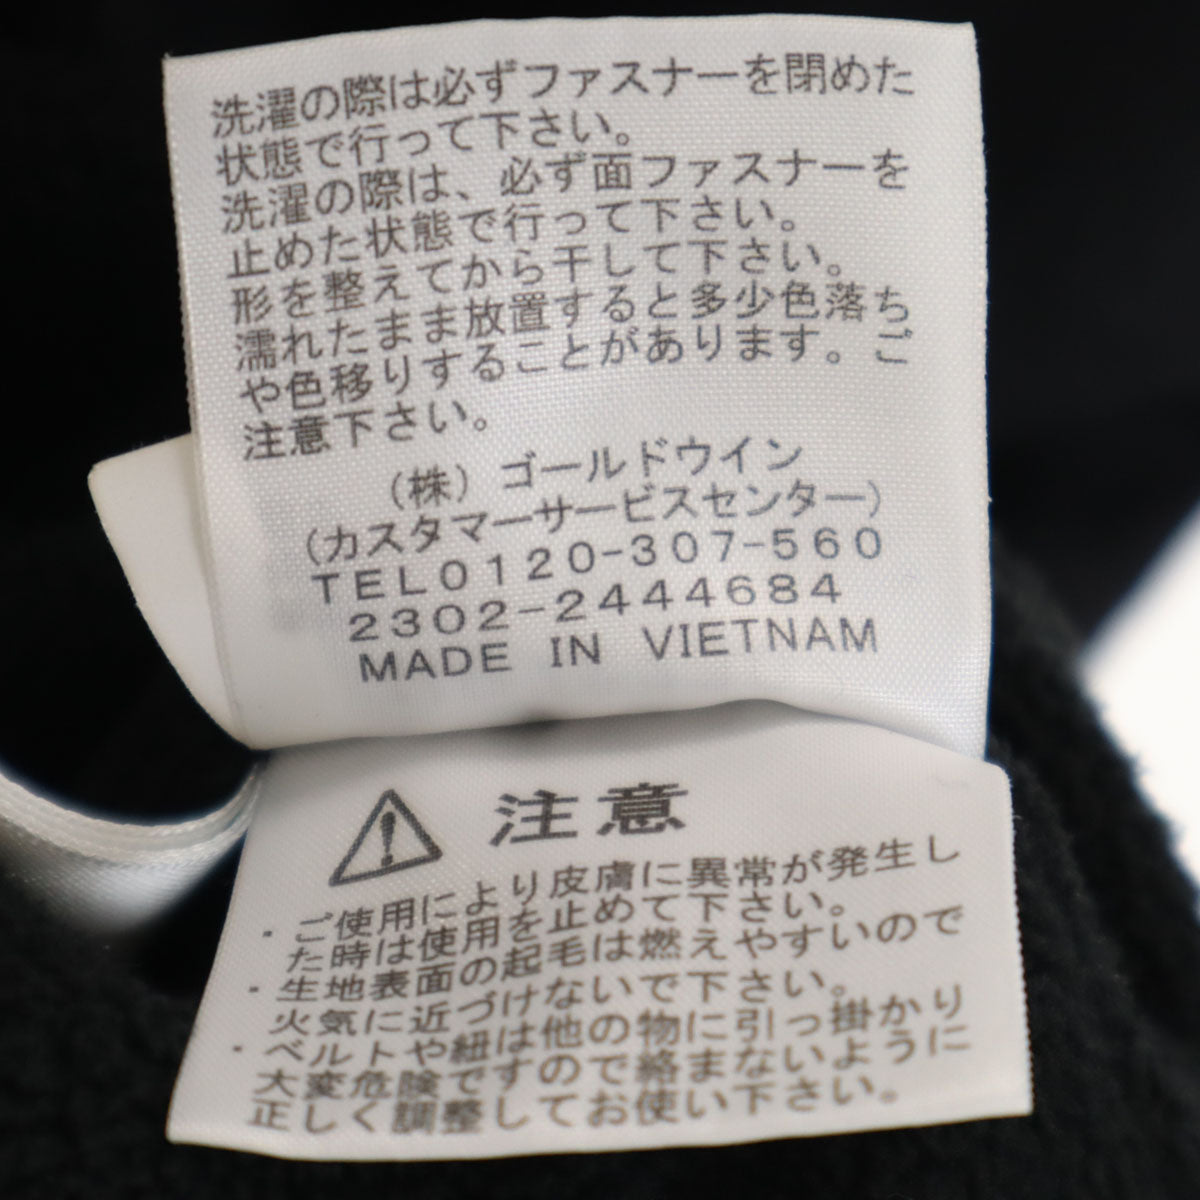 洗濯の際は必ずファスナーを閉めた
状態で行って下さい。
洗濯の際は、必ず面ファスナーを
止めた状態で行って下さい。
形を整えてから干して下さい。
濡れたまま放置すると多少色落ち
や色移りすることがあります。ご
注意下さい。
(株) ゴールドウイン
(カスタマーサービスセンター)
TEL0120-307-560
2302-2444684
MADE IN VIETNAM
注意
・ご使用により皮膚に異常が発生し
た時は使用を止めて下さい。
・生地表面の起毛は燃えやすいので
火気に近づけないで下さい。
・ベルトや紐は他の物に引っ掛かり
大変危険ですので絡まないように
正しく調整してお使い下さい。